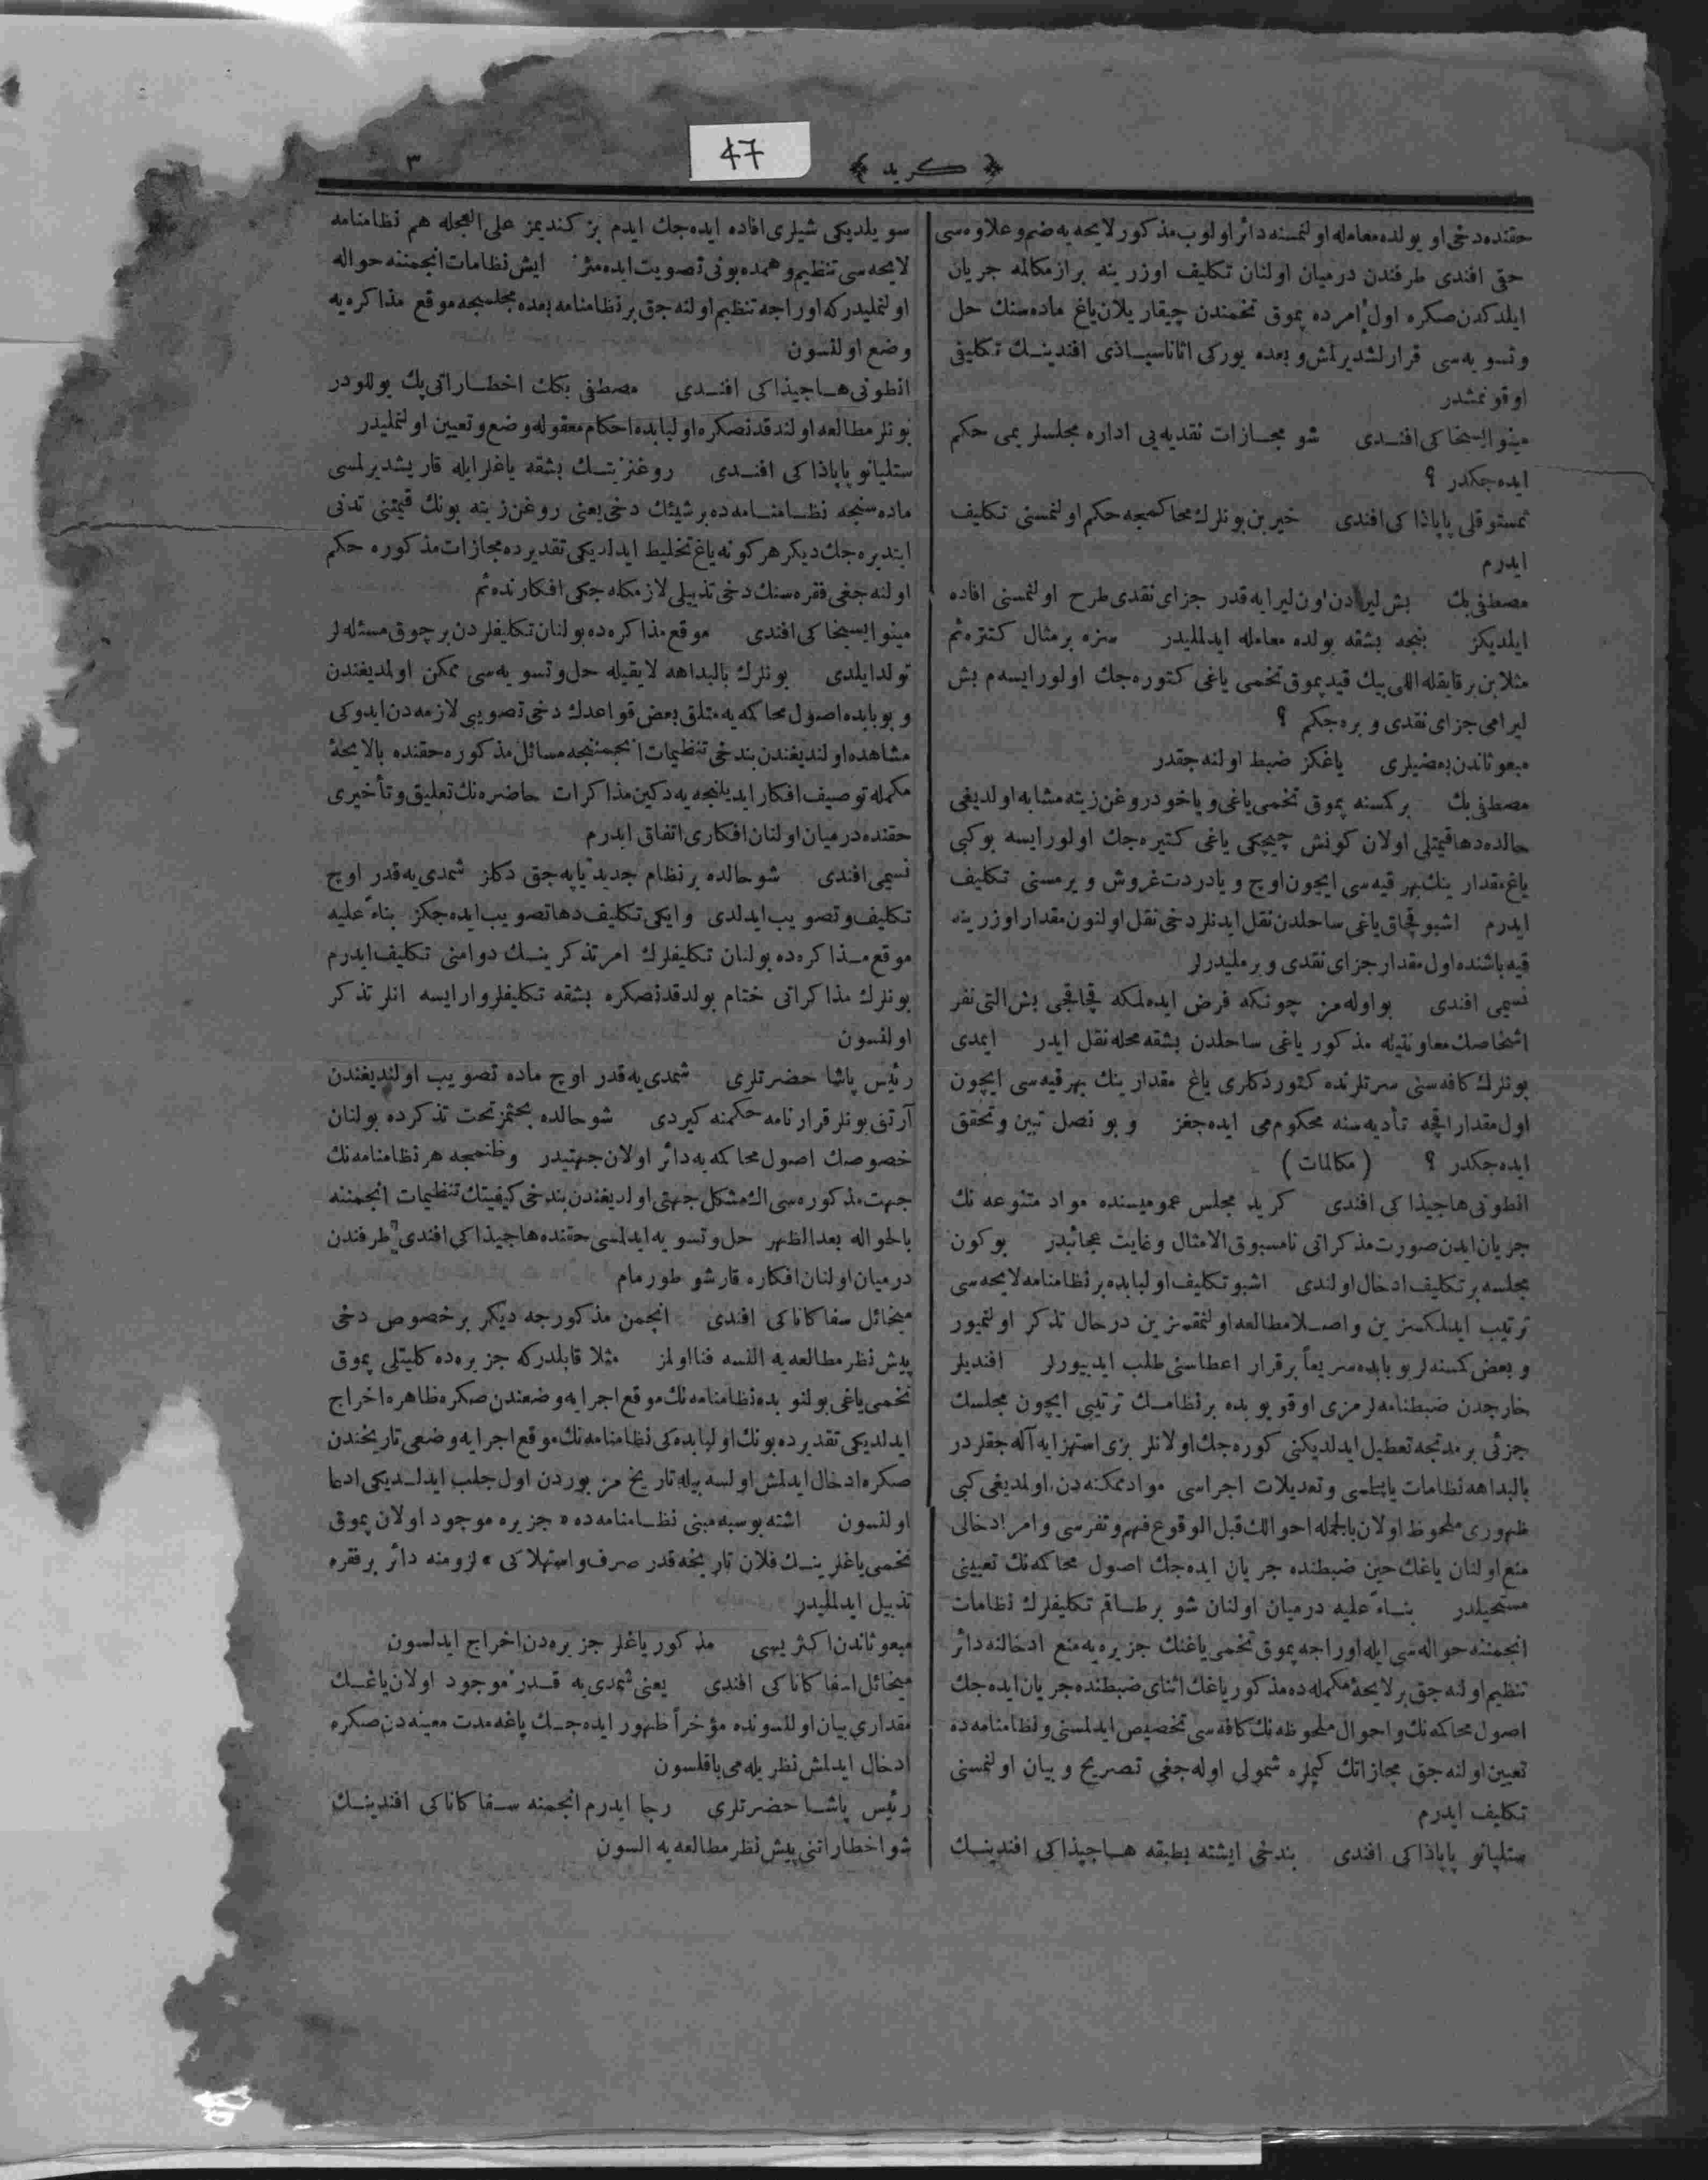 ٣
47
﴿ كريد ﴾
حقنده دخی او یولده معامله اولنمسنه دائر اولوب مذكور لايحه‌یه ضم وعلاوه‌سی
حقی افندی طرفندن درمیان اولنان تكلیف اوزرینه براز مكالمه جریان
ایلدكدن صكره اول امرده پموق تخمندن چیقاریلان یاغ ماده‌سنك حل
وتسویه‌سی قرارلشدیرلمش و بعده یوركی اثاناسیاذی افندینك تكلیفی
اوقونمشدر
مینو ایسیخاكی افندی شو مجازات نقدیه‌یی اداره مجلسلریمی حكم
ایده‌جكدر ؟
ثمستوقلی پاپاذاكی افندی خیر بن بونلرك محاكمجه حكم اولنمسنی تكلیف
ایدرم
مصطفی بك بش لیرادن اون لیرایه قدر جزای نقدی طرح اولنمسنی افاده
ایلدیكز بنجه بشقه یولده معامله ایدلملیدر سزه بر مثال كتیره‌یم
مثلا بن بر قایقله اللی بیك قیه پموق تخمی یاغی كتوره‌جك اولور ایسه‌م بش
لیرامی جزای نقدی ویره‌جكم ؟
مبعوثاندن بعضیلری یاغكز ضبط اولنه‌جقدر
مصطفی بك بر كمسنه پموق تخمی یاغی ویاخود روغن زیته مشابه اولدیغی
حالده دها قیمتلی اولان كونش چیچكی یاغی كتیره‌جك اولور ایسه بو كبی
یاغ مقدارینك بهر قیه‌سی ایچون اوچ ویا دردت غروش ویرمسنی تكلیف
ایدرم اشبو قچاق یاغی ساحلدن نقل ایدنلر دخی نقل اولنون مقدار اوزرینه
قیه باشنده اول مقدار جزای نقدی ویرملیدرلر
نسیمی افندی بو اوله‌مز چونكه فرض ایده‌لمكه قچاقجی بش التی نفر
اشخاصك معاونتیله مذكور یاغی ساحلدن بشقه محله نقل ایدر ایمدی
بونلرك كافه‌سنی سرتلرنده كتوردكلری یاغ مقدارینك بهر قیه‌سی ایچون
اول مقدار اقچه تأدیه‌سنه محكوم‌می ایده‌جغز و بو نصل تبین وتحقق
ایده‌جكدر ؟ (مكالمات)
انطونی هاجیذاكی افندی كرید مجلس عمومیسنده مواد متنوعه نك
جریان ایدن صورت مذكراتی نامسبوق الامثال وغایت عجائبدر بوكون
مجلسه بر تكلیف ادخال اولندی اشبو تكلیف اولبابده بر نظامنامه لایحه‌سی
ترتیب ایدلمكسزین واصلا مطالعه اولنمقسزین درحال تذكر اولنمیور
وبعض كمسنه‌لر بو بابده سریعاً بر قرار اعطاسنی طلب ایدیبیورلر افندیلر
خارجدن ضبطنامه‌لرمزی اوقویوبده بر نظامك ترتیبی ایچون مجلسك
جزئی بر مدتجه تعطیل ایدلدیكنی كوره‌جك اولانلر بزی استهزایه آله‌جقلردر
بالبداهه نظامات یاپلمسی وتعدیلات اجراسی مواد ممكنه‌دن اولمدیغی كبی
ظهوری ملحوظ اولان بالجمله احوالك قبل الوقوع فهم وتفرسی وامر ادخالی
منع اولنان یاغك حین ضبطنده جریان ایده‌جك اصول محاكمه‌نك تعیینی
مستحیلدر بناءً علیه درمیان اولنان شو بر طاقم تكلیفلرك نظامات
انجمننه حواله‌سی ایله اوراجه پموق تخمی یاغنك جزیره‌یه منع ادخالنه دائر
تنظیم اولنه‌جق بر لایحهٔ مكمله‌ده مذكور یاغك اثنای ضبطنده جریان ایده‌جك
اصول محاكمه‌نك و احوال ملحوظه‌نك كافه‌سی تخصیص ایدلمسنی ونظامنامه‌ده
تعیین اولنه‌جق مجازاتك كیملره شمولی اوله‌جغی تصریح و بیان اولنمسنی
تكلیف ایدرم
ستلیانو پاپاذاكی افندی بندخی ایشته بطبقه هاجیذاكی افندینك
سویلدیكی شیلری افاده ایده‌جك ایدم بز كندیمز علی العجله هم نظامنامه
لایحه‌سی تنظیم وهمده بونی تصویت ایده‌مز ایش نظامات انجمننه حواله
اولنملیدر كه اوراجه تنظیم اولنه‌جق بر نظامنامه بعده مجلسجه موقع مذاكره‌یه
وضع اولنسون
انطونی هاجیذاكی افندی مصطفی بكك اخطاراتی پك یوللودر
بونلر مطالعه اولندقدنصكره اولبابده احكام معقوله وضع وتعیین اولنملیدر
ستلیانو پاپاذاكی افندی روغنزیتك بشقه یاغلر ایله قاریشدیرلمسی
ماده‌سنجه نظامنامه‌ده بر شیئك دخی یعنی روغن زیته بونك قیمتنی تدنی
ایتدیره‌جك دیكر هر كونه یاغ تخلیط ایدلدیكی تقدیرده مجازات مذكوره حكم
اولنه‌جغی فقره‌سنك دخی تذییلی لازمكله‌جكی افكارنده‌یم
مینو ایسیخاكی افندی موقع مذاكره‌ده بولنان تكلیفلردن بر چوق مسئله‌لر
تولد ایلدی بونلرك بالبداهه لایقیله حل وتسویه‌سی ممكن اولمدیغندن
و بو بابده اصول محاكمه‌یه متلق بعض قواعدك دخی تصویبی لازمه‌دن ایدوكی
مشاهده اولندیغندن بندخی تنظیمات انجمننجه مسائل مذكوره حقنده بالایحهٔ
مكمله توصیف افكار ایدیلنجه‌یه دكین مذاكرات حاضره‌نك تعلیق وتأخیری
حقنده درمیان اولنان افكاری اتفاق ایدرم
نسیمی افندی شو حالده بر نظام جدید یاپه‌جق دكلز شمدی‌یه قدر اوچ
تكلیف وتصویب ایدلدی و ایكی تكلیف دها تصویب ایده‌جكز بناءً علیه
موقع مذاكره‌ده بولنان تكلیفلرك امر تذكرینك دوامنی تكلیف ایدرم
بونلرك مذاكراتی ختام بولدقدنصكره بشقه تكلیفلر وار ایسه انلر تذكر
اولنسون
رئیس پاشا حضرتلری شمدی‌یه قدر اوچ ماده تصویب اولندیغندن
آرتق بونلر قرارنامه حكمنه كیردی شو حالده بحثمز تحت تذكرده بولنان
خصوصك اصول محاكمه‌یه دائر اولان جهتیدر وظنمجه هر نظامنامه‌نك
جهت مذكوره‌سی اك مشكل جهتی اولدیغندن بندخی كیفیتك تنظیمات انجمننه
بالحواله بعد الظهر حل وتسویه ایدلمسی حقنده هاجیذاكی افندی طرفندن
درمیان اولنان افكاره قارشو طورمام
میخائل سفاكاناكی افندی انجمن مذكورجه دیكر بر خصوص دخی
پیش نظر مطالعه‌یه النسه فنا اولمز مثلا قابلدر كه جزیره‌ده كلیتلی پموق
تخمی یاغی بولنوبده نظامنامه‌نك موقع اجرایه وضعندن صكره ظاهره اخراج
ایدلدیكی تقدیرده بونك اولبابده‌كی نظامنامه‌نك موقع اجرایه وضعی تاریخندن
صكره ادخال ایدلمش اولسه بیله تاریخ مزبوردن اول جلب ایدلدیكی ادعا
اولنسون اشته بوسببه مبنی نظامنامه‌ده « جزیره موجود اولان پموق
تخمی یاغلرینك فلان تاریخه قدر صرف واستهلاكی » لزومنه دائر بر فقره
تذییل ایدلملیدر
مبعوثاندن اكثریسی مذكور یاغلر جزیره‌دن اخراج ایدلسون
میخائل اسفاكاناكی افندی یعنی شمدی‌یه قدر موجود اولان یاغك
مقداری بیان اولنسونده مؤخراً ظهور ایده‌جك یاغه مدت معینه‌دن صكره
ادخال ایدلمش نظریله‌می باقلسون
رئیس پاشا حضرتلری رجا ایدرم انجمنه سفاكاناكی افندینك
شو اخطاراتنی پیش نظر مطالعه‌یه السون